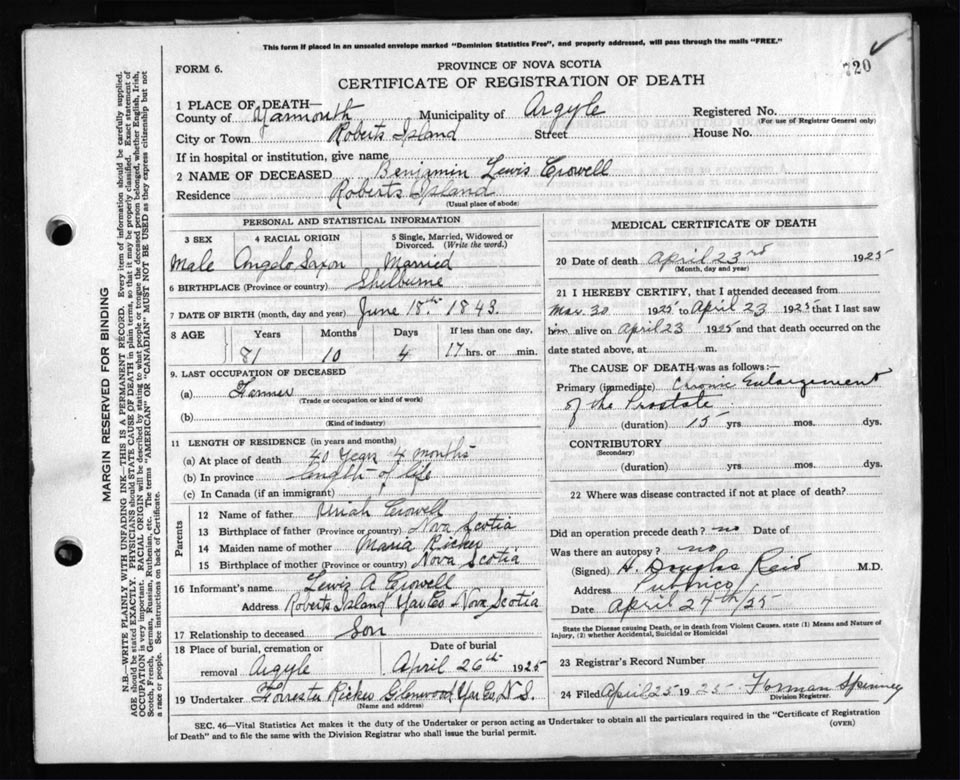 This form if placed in an unsealed envelope marked "Dominion Statistics Free", and properly addressed, will pass through the mails "FREE."
720
FORM 6.
PROVINCE OF NOVA SCOTIA
CERTIFICATE OF REGISTRATION OF DEATH
1 PLACE OF DEATH—
County of Yarmouth Municipality of Argyle Registered No.
(For use of Registrar General only)
City or Town Roberts Island Street House No.
If in hospital or institution, give name
2 NAME OF DECEASED Benjimin Lewis Crowell
Residence Roberts Island
(Usual place of abode)
PERSONAL AND STATISTICAL INFORMATION
3 SEX 4 RACIAL ORIGIN 5 Single, Married, Widowed or Divorced. (Write the word.)
Male Anglo Saxon Married
6 BIRTHPLACE (Province or country) Shelburne
7 DATE OF BIRTH (month, day and year) June 18th 1843.
8 AGE Years Months Days If less than one day,
81 10 4 17 hrs. or min.
9. LAST OCCUPATION OF DECEASED
(a) Farmer
(Trade or occupation or kind of work)
(b)
(Kind of industry)
11 LENGTH OF RESIDENCE (in years and months)
(a) At place of death 40 Years 4 months
(b) In province length of life
(c) In Canada (if an immigrant)
Parents
12 Name of father Uriah Crowell
13 Birthplace of father (Province or country) Nova Scotia
14 Maiden name of mother Maria Ricker
15 Birthplace of mother (Province or country) Nova Scotia
16 Informant's name Lewis A Crowell
Address Roberts Island Yar Co Nova Scotia
17 Relationship to deceased Son
18 Place of burial, cremation or removal Argyle
Date of burial April 26th 1925
19 Undertaker Forrester Ricker Glenwood Yar Co, N S.
(Name and address)
MEDICAL CERTIFICATE OF DEATH
20 Date of death April 23rd 1925
(Month, day and year)
21 I HEREBY CERTIFY, that I attended deceased from
Mar. 30 1925 to April 23 1925 that I last saw
him alive on April 23 1925 and that death occurred on the
date stated above, at m.
The CAUSE OF DEATH was as follows:—
Primary (immediate) Chronic Enlargement
of the Prostate.
(duration) 15 yrs mos. dys.
CONTRIBUTORY
(Secondary)
(duration) yrs. mos. dys.
22 Where was disease contracted if not at place of death?
Did an operation precede death? no Date of
Was there an autopsy? no
(Signed) H. Douglas Reid M.D.
Address Pubnico
Date April 24th/25
State the Disease causing Death, or in death from Violent Causes, state (1) Means and Nature of
Injury, (2) whether Accidental, Suicidal or Homicidal
23 Registrar's Record Number
24 Filed April 25 1925 Forman Spinney
Division Registrar.
SEC. 46—Vital Statistics Act makes it the duty of the Undertaker or person acting as Undertaker to obtain all the particulars required in the "Certificate of Registration
of Death" and to file the same with the Division Registrar who shall issue the burial permit.
(OVER)
MARGIN RESERVED FOR BINDING
N.B.—WRITE PLAINLY WITH UNFADING INK—THIS IS A PERMANENT RECORD. Every item of information should be carefully supplied.
AGE should be stated EXACTLY. PHYSICIANS should STATE CAUSE OF DEATH in plain terms, so that it may be properly classified. Exact statement of
OCCUPATION is very important. RACIAL ORIGIN will be described by stating to what people or tongue the deceased person belonged, whether English, Irish,
Scotch, French, German, Russian, Ruthenian, etc. The terms "AMERICAN" OR "CANADIAN" MUST NOT BE USED as they express citizenship but not
a race or people. See instructions on back of Certificate.